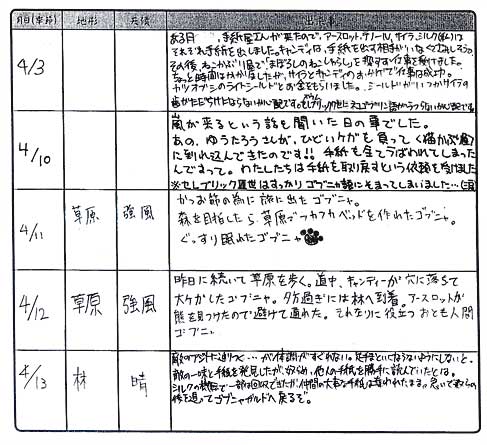 月日(季節) 地形 天候 出来事
4/3
ある日、手紙屋さんが来たので、アースロット、サノール、サイラ、ミルク(私)は
それぞれ手紙を出しました。キャンディは、手紙を出す相手がいなくてさみしそう。
その後、ねこかぶり屋で「まぼろしのねこじゃらし」を
ちょっと時間はかかりましたが、サイラとキャンディのおかげで仕事は成功。
カツオブシのライトシールドとお金をもらいました。
4/10
嵐が来るという話を聞いた日の事でした。
あの、ゆうたろうさんが、ひどいケガを負って〈猫かぶり屋〉
に倒れ込んできたのです!!手紙を全てうばわれてしまった
んですって。わたしたちは手紙を取り戻すという依頼を受けました
※セレブリック屋世はすっかりゴブニャ語にそまってしまいました…(涙)
4/11 草原 強風
かつお節の為に旅に出たゴブニャ。
森を目指したら、草原でフカフカベッドを作れたゴブニャ。
ぐっすり眠れたゴブニャ
4/12 草原 強風
昨日に続いて草原を歩く。道中、キャンディーが穴に落ちて
大ケガしたゴブニャ。夕方過ぎには林へ到着。アースロットが
熊を見つけたので避けて通れた。それなりに役立つおとも人間
ゴブニャ
4/13 林 晴
敵のアジトに辿りつく…が体調がすぐれない。足手まといにならないようにしないと。
敵の一味と手紙を発見したが、奴らめ、他人の手紙を勝手に読んでいたとは。
シルクの機転で一部は回収できたが、仲間の大事な手紙は奪われたまま。急いで奴らの
後を追ってゴブニャガルドへ戻るぞ。